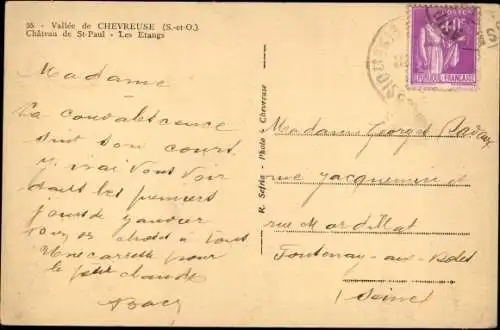 95. - Vallée de CHEVREUSE (S.-et-O.)
Château de St-Paul - Les Etangs
Madame
La convalescence
suit son cours
j'irai vous voir
dans les premiers
jours de janvier
à tous
Une caresse pour
le petit claude
R. Sefrin - Photo à Chevreuse
POSTES
REPUBLIQUE FRANÇAISE
Madame Georges
rue Jacquemin et
rue Mordillat
Fontenay-aux-Roses
(Seine)